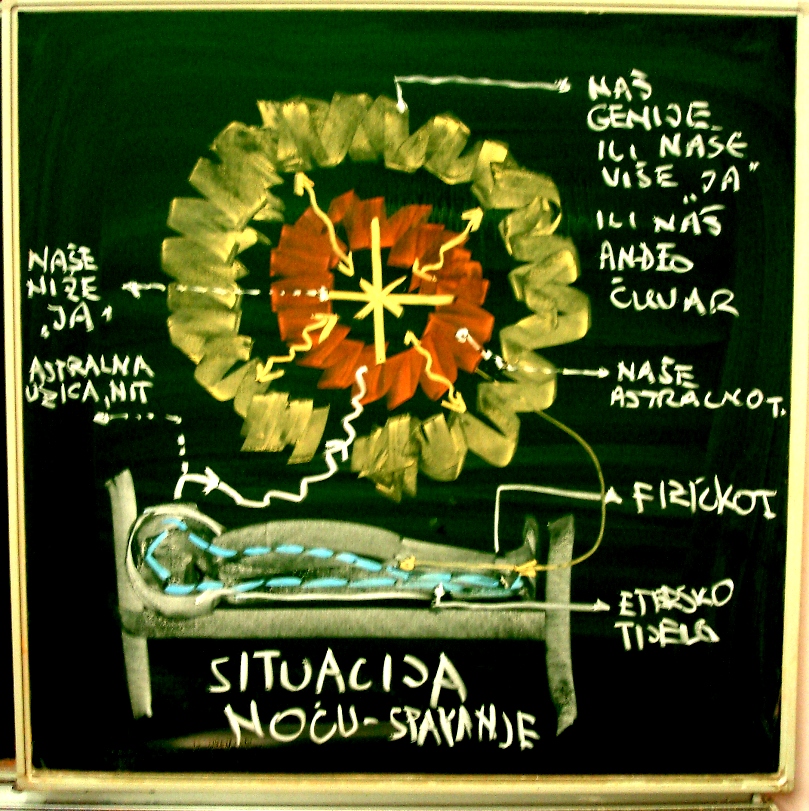 NAŠ
GENIJE
ILI NAŠE
VIŠE „JA"
ILI NAŠ
ANĐEO
ČUVAR
NAŠE
NIŽE
„JA"
ASTRALNA
UZICA, NIT
NAŠE
ASTRALNO T.
FIZIČKO T.
ETERSKO
TIJELO
SITUACIJA
NOĆU - SPAVANJE